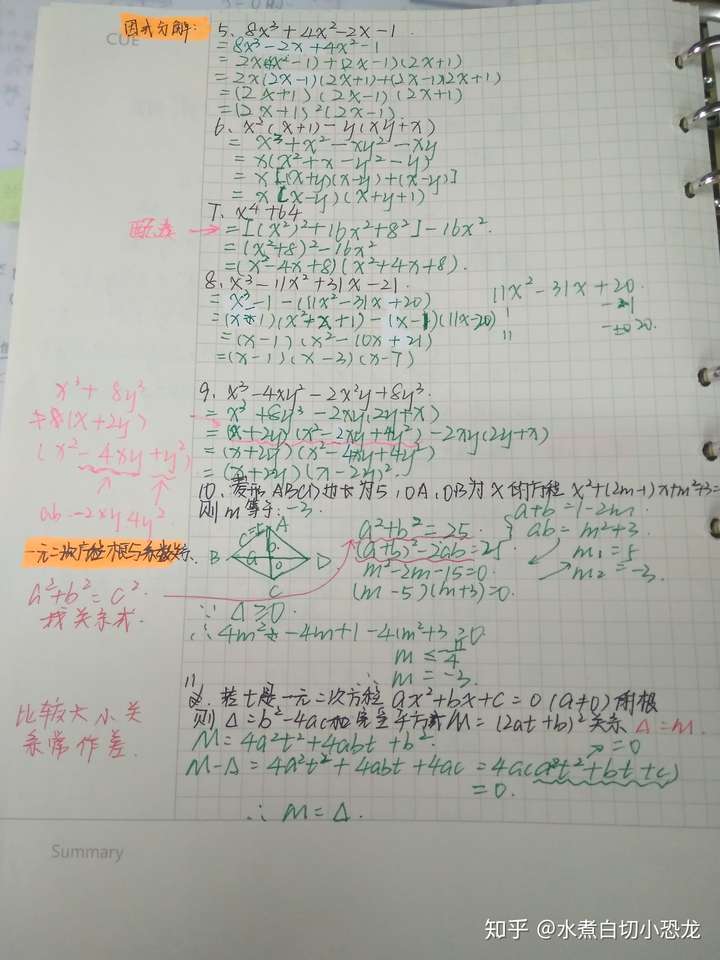 CUE
因式分解:
5、8x³+4x²-2x-1
=8x³-2x+4x²-1
=2x(4x²-1)+(2x-1)(2x+1)
=2x(2x-1)(2x+1)+(2x-1)(2x+1)
=(2x+1)(2x-1)(2x+1)
=(2x+1)²(2x-1)
6、x²(x+1)-y(xy+x)
=x³+x²-xy²-xy
=x(x²+x-y²-y)
=x[(x+y)(x-y)+(x-y)]
=x[(x-y)(x+y+1)
7、x⁴+64
配方
=[(x²)²+16x²+8²]-16x²
=(x²+8)²-16x²
=(x²-4x+8)(x²+4x+8).
8、x³-11x²+31x-21
=x³-1-(11x²-31x+20)
=(x-1)(x²+x+1)-(x-1)(11x-20)
=(x-1)(x²-10x+21)
=(x-1)(x-3)(x-7)
11x²-31x+20
1 -1
11 -20
9、x³-4xy²-2x²y+8y³
=x³+8y³-2xy(2y+x)
=(x+2y)(x²-2xy+4y²)-2xy(2y+x)
=(x+2y)(x²-4xy+4y²)
=(x+2y)(x-2y)²
x³+8y³
(x+2y)
(x²-4xy+y²)
ab=-2xy 4y²
10、菱形ABCD边长为5,OA,OB为x的方程x²+(2m-1)x+m²+3=
则m等于:-3
一元二次方程根与系数关系
a²+b²=c²
找关系求
B
A
D
C
a
b
c=5
o
a²+b²=25
(a+b)²-2ab=25
m²-2m-15=0
(m-5)(m+3)=0
a+b=1-2m
ab=m²+3
m₁=5
m₂=-3
∵Δ≥0
∴4m²-4m+1-4(m²+3≥0
m≤-11/4
∴m=-3
11
若t是一元二次方程ax²+bx+c=0(a≠0)的根
则Δ=b²-4ac和完全平方式M=(2at+b)²关系Δ=M
比较大小关
系常作差.
M=4a²t²+4abt+b²
M-Δ=4a²t²+4abt+4ac=4ac(a²t²+bt+c)
=0
=0.
∴M=Δ.
Summary
知乎 @水煮白切小恐龙